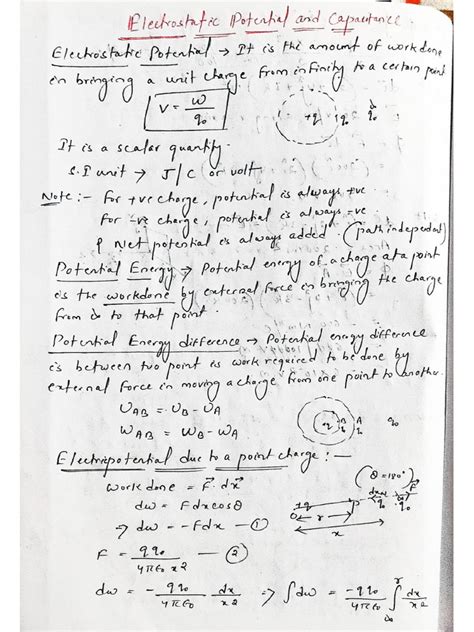 Electrostatic Potential and Capacitance
Electrostatic Potential → It is the amount of workdone
in bringing a unit charge from infinity to a certain point
V = w/q₀
+q q₀ ∞ q₀
It is a scalar quantity.
S.I unit → J/C (or volt)
Note :- For +ve charge, potential is always +ve
For -ve charge, potential is always -ve
& Net potential is always added (path independent)
Potential Energy → Potential energy of a charge at a point
is the workdone by external force in bringing the charge
from ∞ to that point.
Potential Energy difference → Potential energy difference
is between two point is work required to be done by
external force in moving a charge from one point to another.
U_AB = U_B - U_A
W_AB = W_B - W_A
q B A q₀
Electric potential due to a point charge :—
Workdone = F⃗. dx⃗ (θ = 180°)
dw = Fdx cosθ
⇒ dw = -Fdx —①
+q r P dx F⃗ q₀ x
F = qq₀/4πε₀x² —②
dw = - qq₀/4πε₀ dx/x² ⇒ ∫dw = -qq₀/4πε₀ ∫_∞^r dx/x²